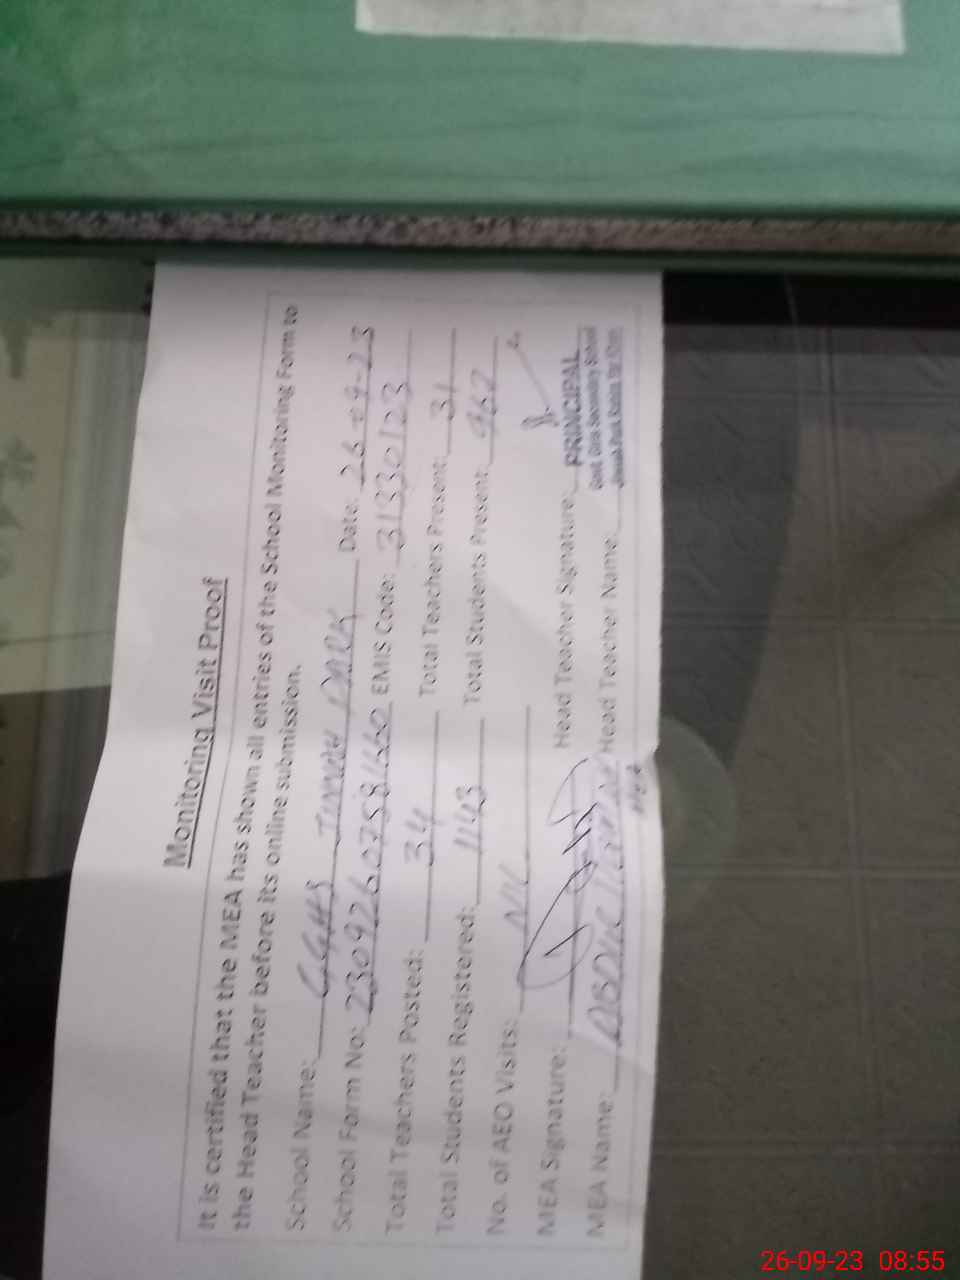 Monitoring Visit Proof
It is certified that the MEA has shown all entries of the School Monitoring Form to
the Head Teacher before its online submission.
School Name: GGHS JINNAH PARK Date: 26-09-23
School Form No: 23092607581660 EMIS Code: 31330123
Total Teachers Posted: 34 Total Teachers Present: 31
Total Students Registered: 1143 Total Students Present: 962
No. of AEO Visits: Nil
MEA Signature: Head Teacher Signature:
PRINCIPAL
Govt. Girls Secondary School
Jinnah Park
MEA Name: ABDUL Head Teacher Name:
26-09-23 08:55